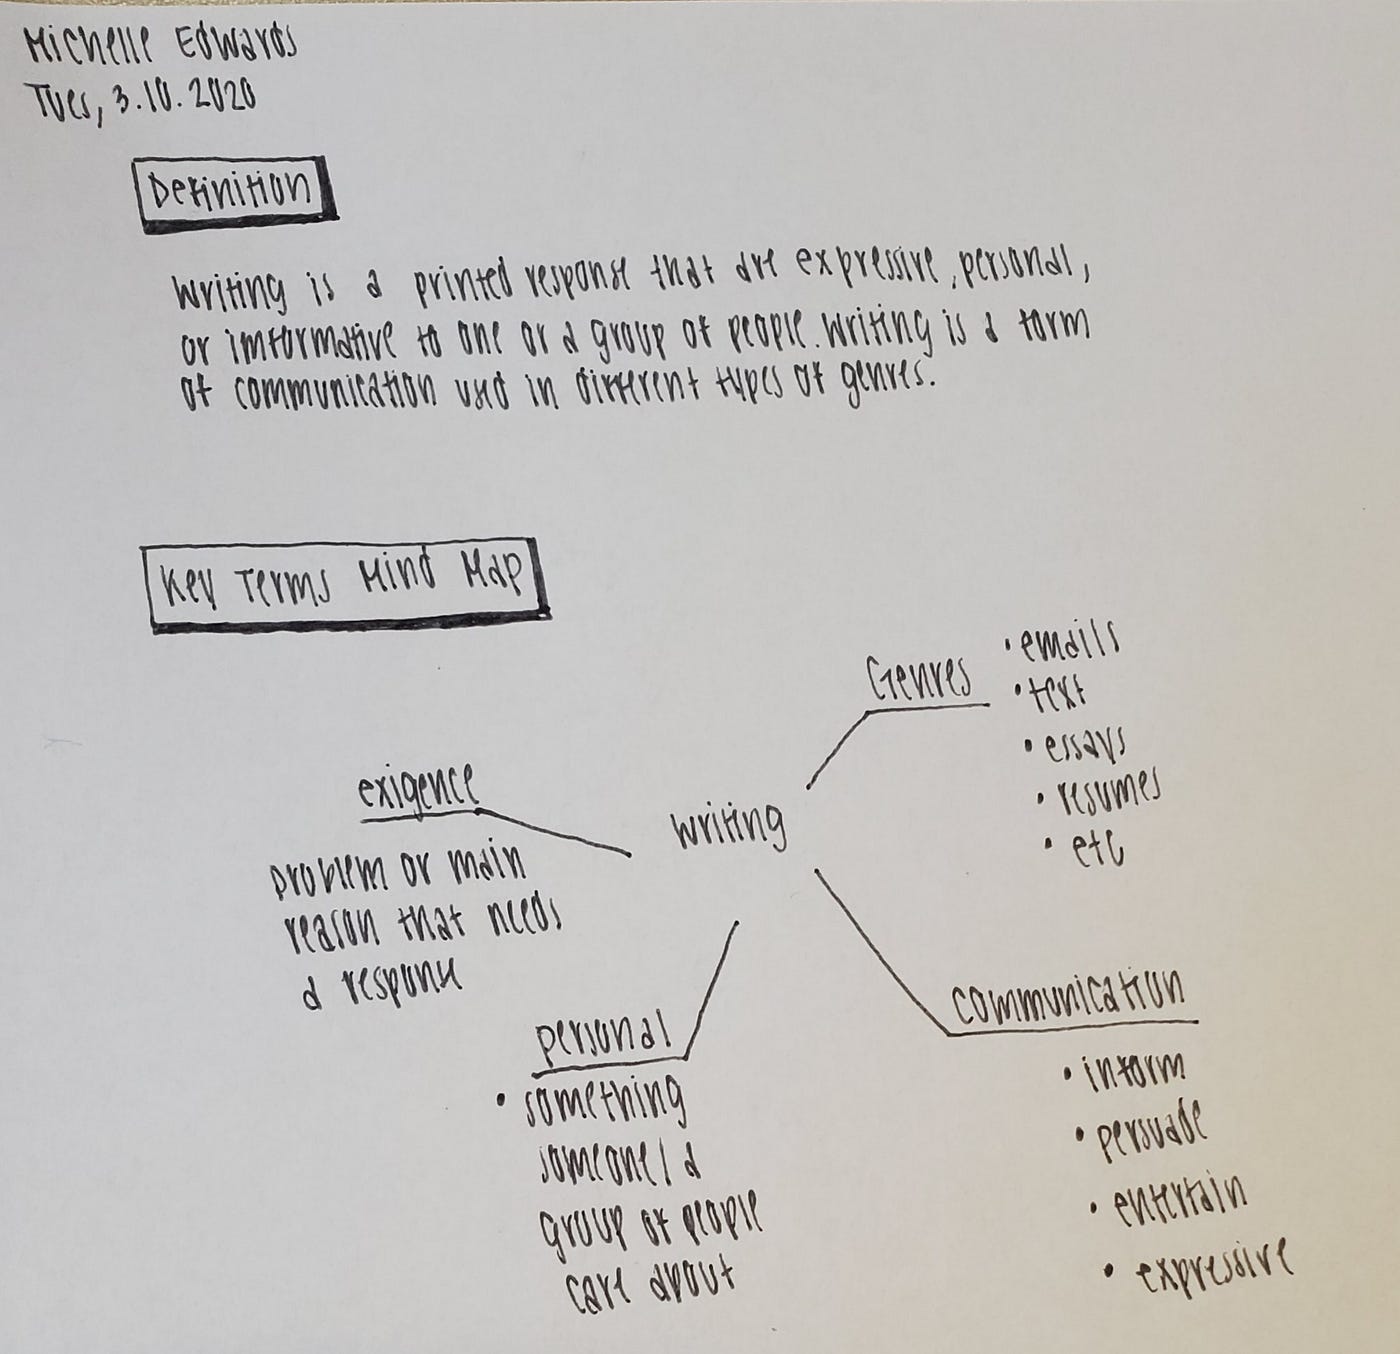 Michelle Edwards
Tues, 3.10.2020
Definition
Writing is a printed response that are expressive, personal,
or imformative to one or a group of people. Writing is a form
of communication used in different types of genres.
Key Terms Mind Map
Genres
• emails
• text
• essays
• resumes
• etc
exigence
problem or main
reason that needs
a response
writing
personal
• something
someone/a
group of people
care about
communication
• inform
• persuade
• entertain
• expressive